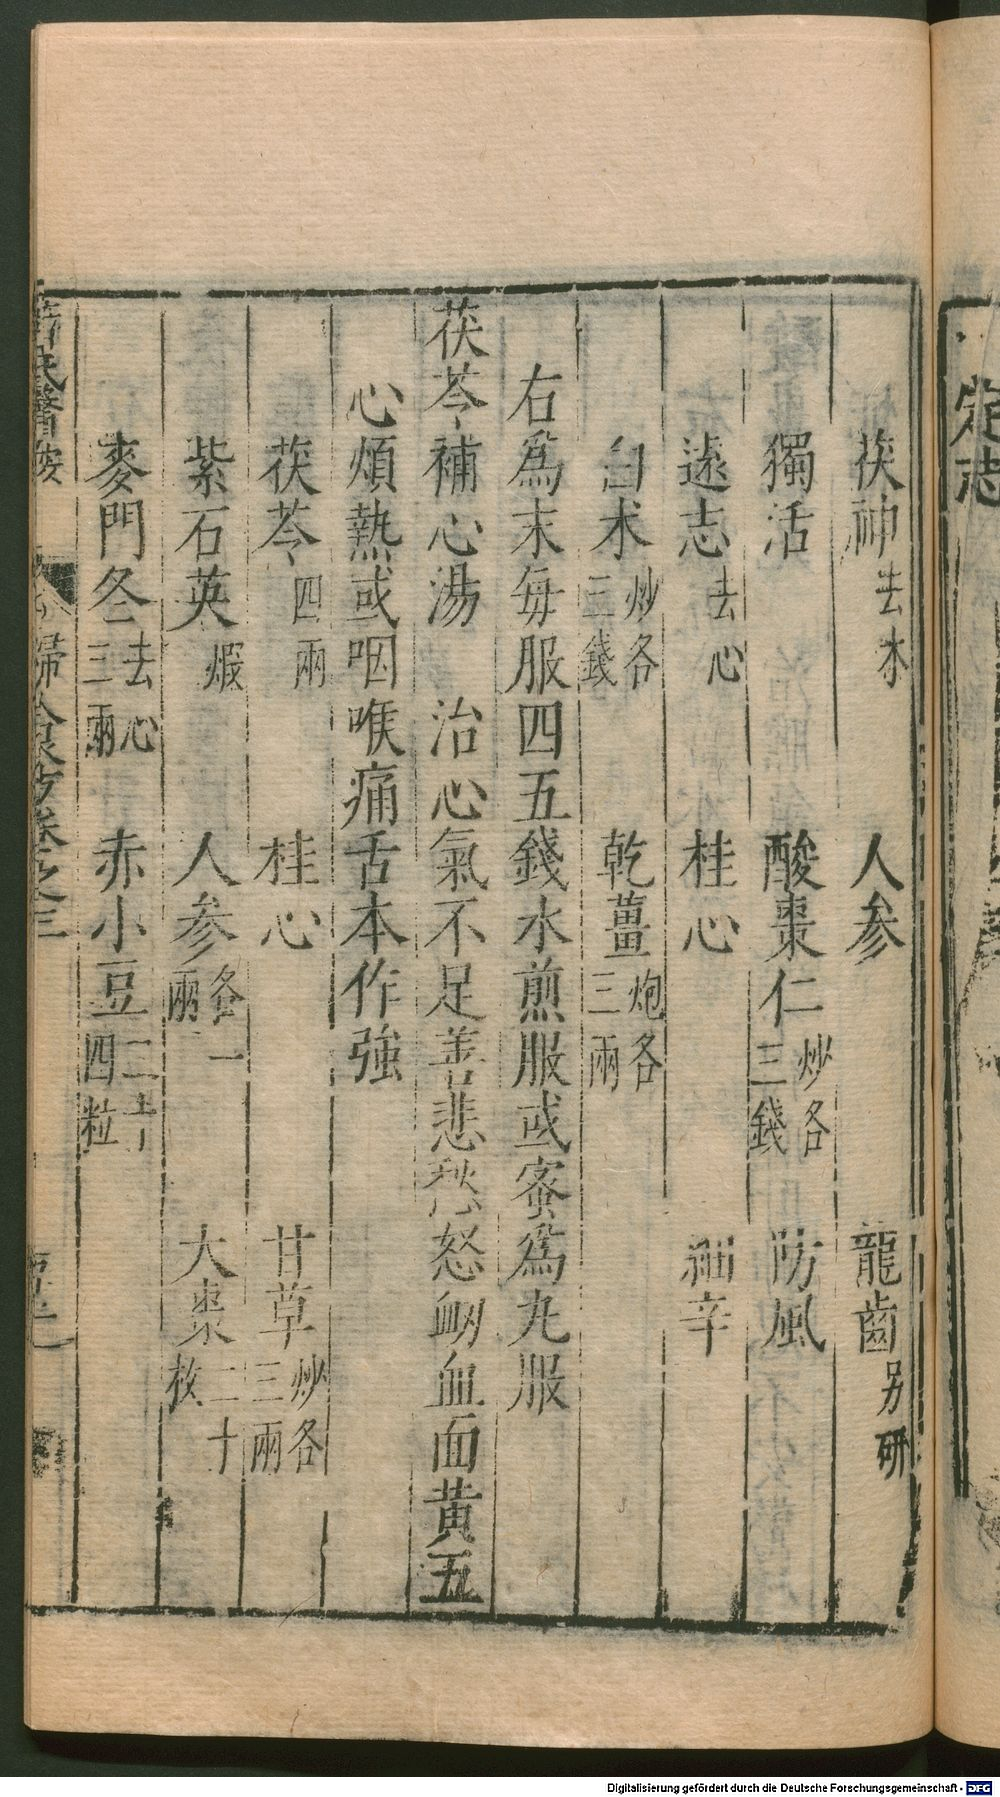 茯神去木　人參　龍齒别研
獨活　酸棗仁炒各三錢　防風
遠志去心　桂心　細辛
白朮炒各三錢　乾薑炮各三兩
右爲末每服四五錢水煎服或蜜爲丸服
茯苓補心湯　治心氣不足善悲愁怒衂血面黃五
心煩熱或咽喉痛舌本作強
茯苓四兩　桂心　甘草炒各三兩
紫石英煆　人參各一兩　大棗二十枚
麥門冬去心三兩　赤小豆二十四粒
薛氏醫按　婦人良方卷之三
定志
Digitalisierung gefördert durch die Deutsche Forschungsgemeinschaft - DFG